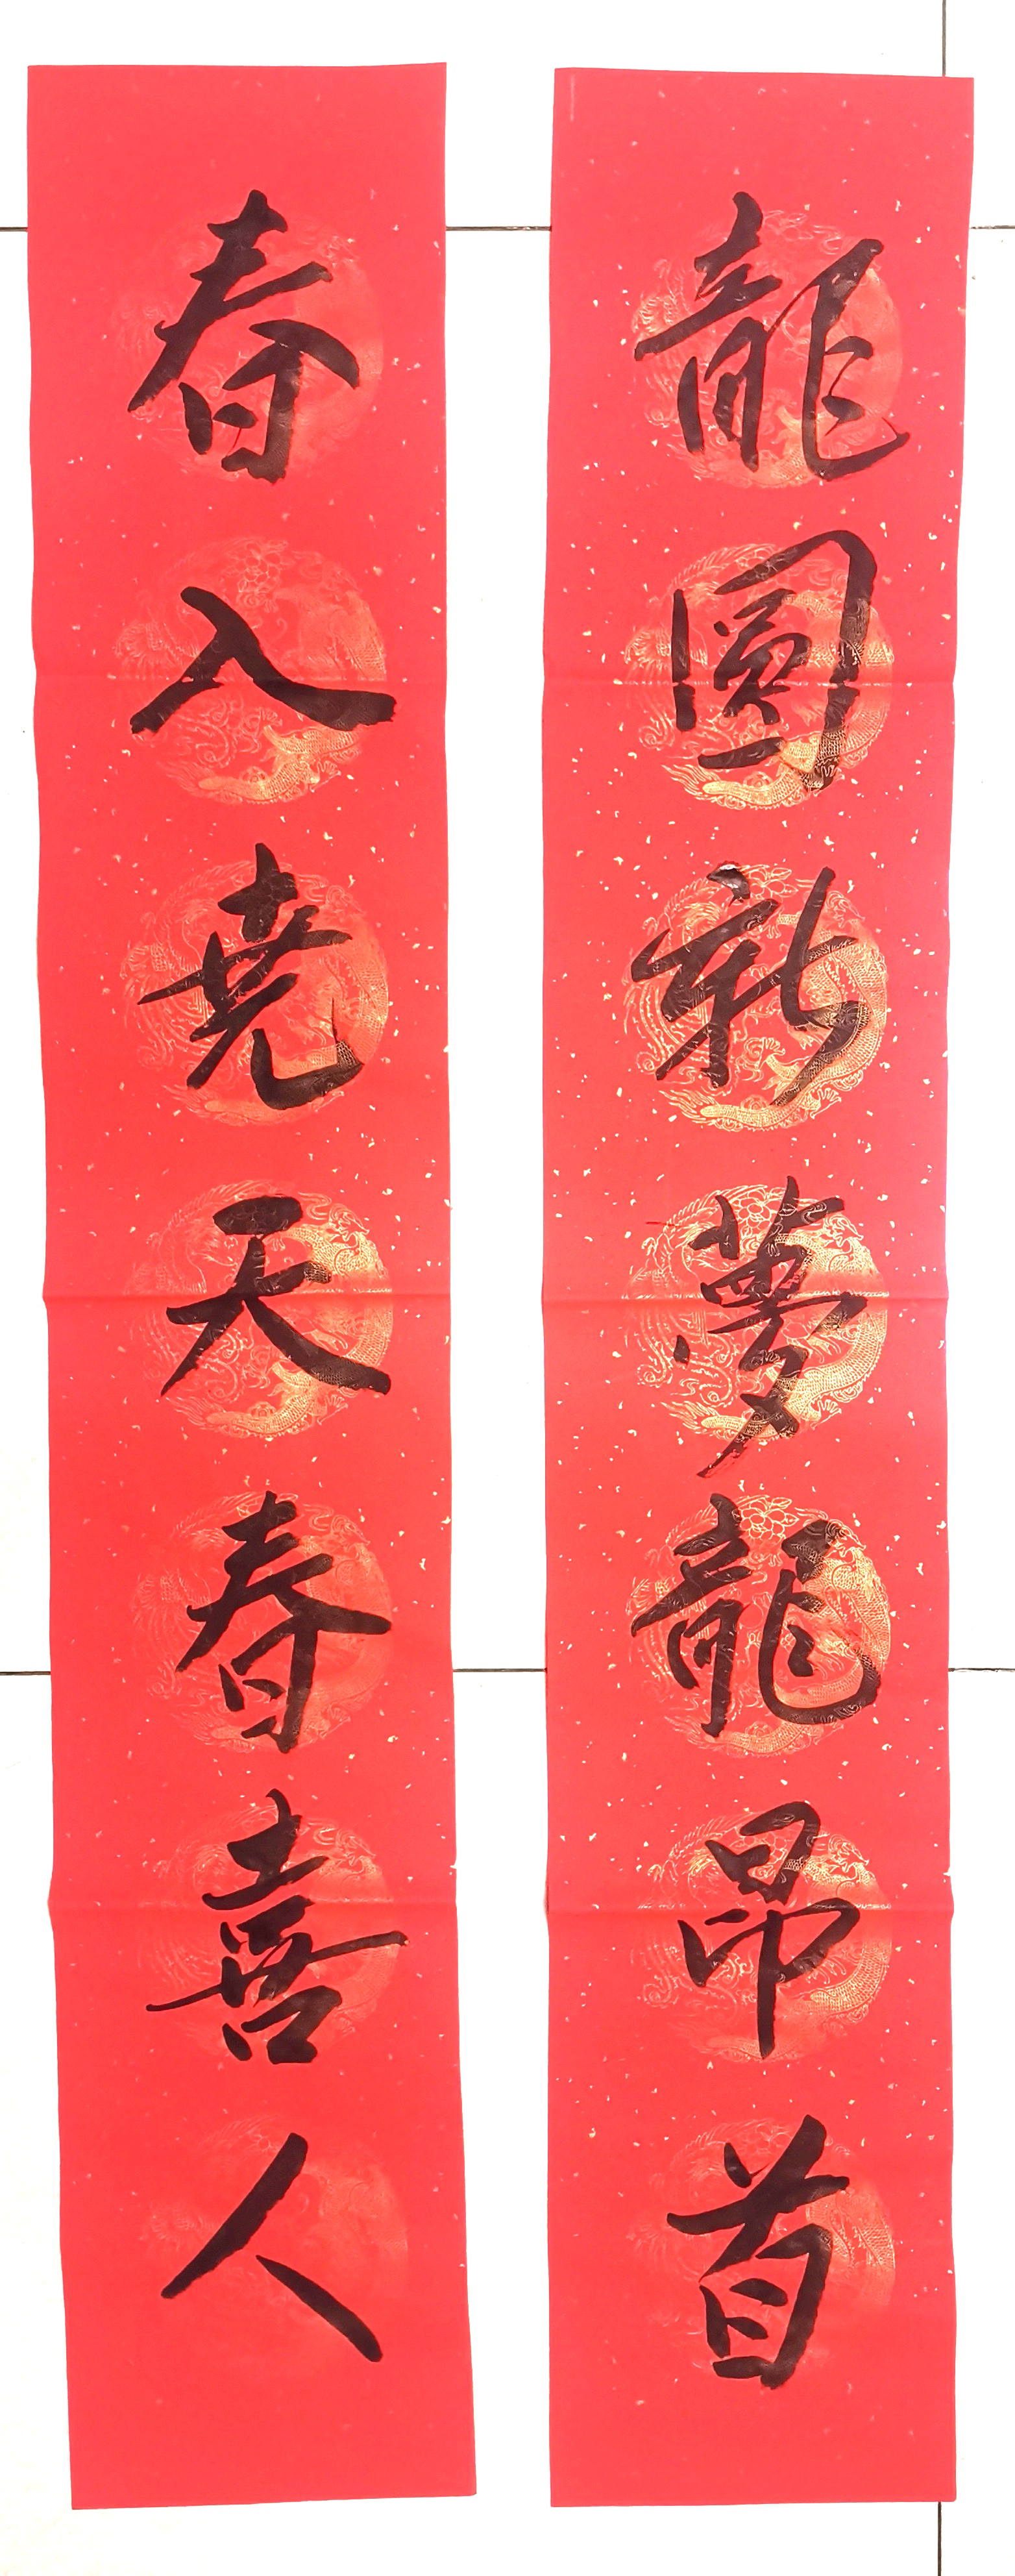 龍圓新夢龍昂首
春入堯天春喜人